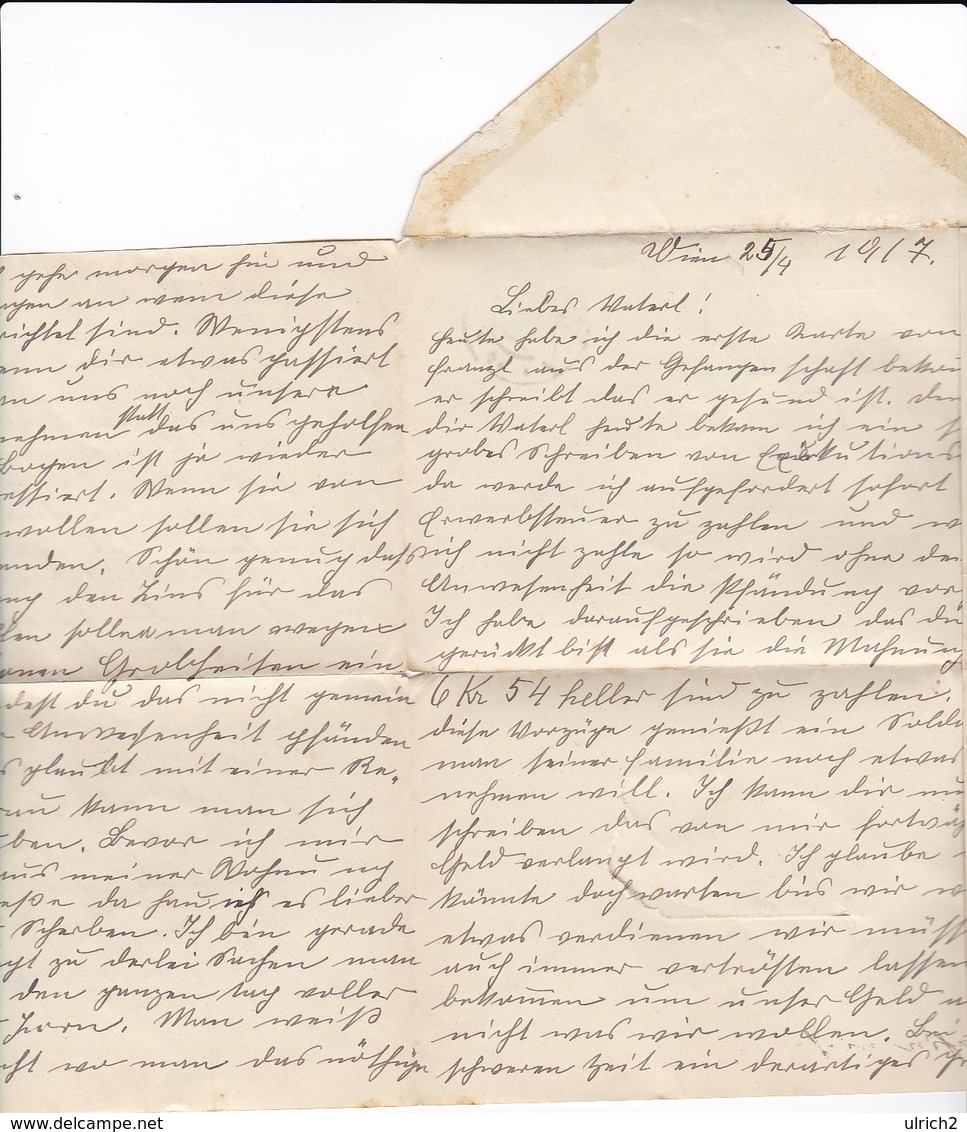 Wien 25/4 1917.
Liebes Vaterl!
heute habe ich die erste Karte von
Franzl aus der Gefangenschaft bekom
er schreibt das er gesund ist. Den
dir Vaterl heute bekam ich ein s
grobes Schreiben von Exekutions
da werde ich aufgefordert sofort
Erwerbsteuer zu zahlen und w
ich nicht zahle so wird ohne de
Anwesenheit die Pfändung vor
Ich habe daraufgeschrieben das du
gerückt bist als sie die Mahnung
6 Kr 54 heller sind zu zahlen.
diese Vorzüge genießt ein Solda
man seiner Familie noch etwas
nehmen will. Ich kann dir nu
schreiben das von mir fortwäh
Geld verlangt wird. Ich glaube
könnte doch warten bis wir w
etwas verdienen wir müss
auch immer vertrösten lassen
bekommen um unser Geld a
nicht was wir wollen. Bei
schweren Zeit ein derartiges
gehe morgen hin und
gen an wem diese
richtet sind. Wenigstens
enn dir etwas passiert
n uns noch unsere
nehmen statt das uns geholfen
bogen ist ja wieder
essiert. Wenn sie von
wollen sollen sie sich
enden. Schön genug daß
ng den Zins für das
len sollen man wegen
onen Grobheiten ein
dest du das nicht gemein
Anwesenheit pfänden
s glaubt mit einer Re„
rau kann man sich
ben. Bevor ich mir
aus meiner Wohnung
eße da hau ich es lieber
Scherben. Ich bin gerade
gt zu derlei Sachen man
den ganzen tag voller
Zorn. Man weiß
cht wo man das nöthige
© ulrich2